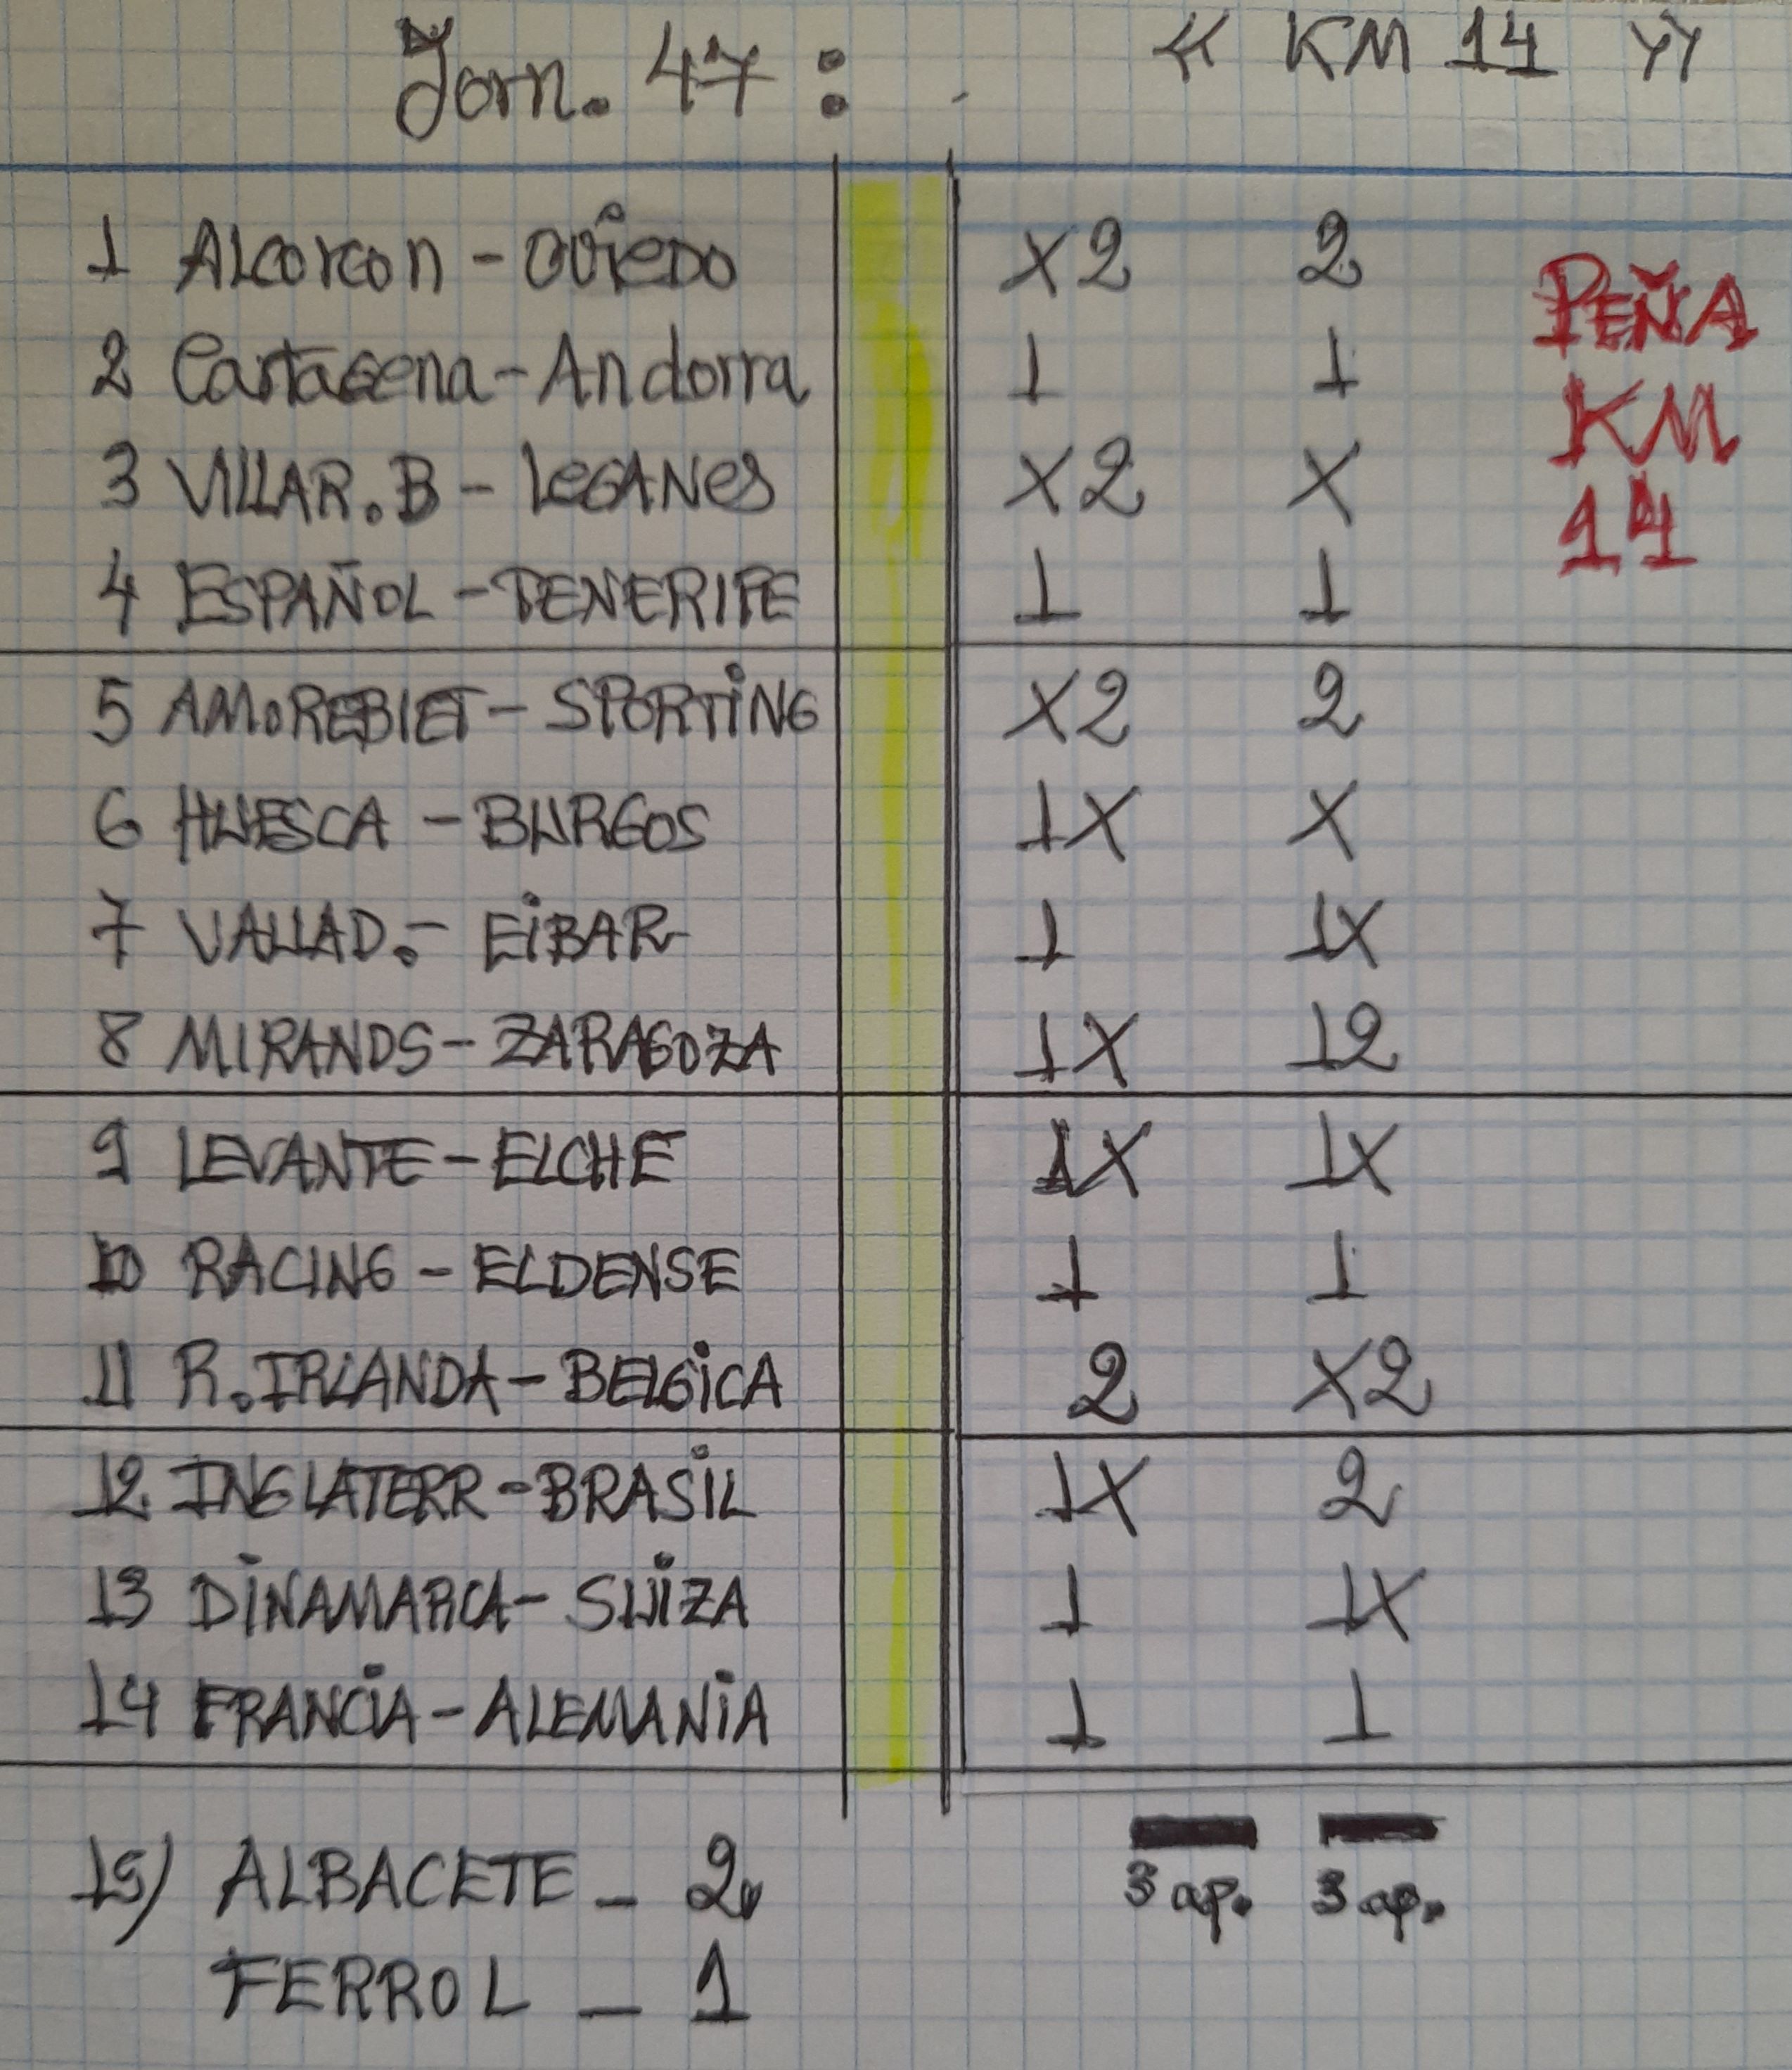 Jorn. 47: « KM 14 »
1 ALCORCON - OVIEDO X2 2
2 Cartagena - Andorra 1 1
3 VILLAR. B - LEGANES X2 X
4 ESPAÑOL - TENERIFE 1 1
5 AMOREBIET - SPORTING X2 2
6 HUESCA - BURGOS 1X X
7 VALLAD. - EIBAR 1 1X
8 MIRANDS - ZARAGOZA 1X 12
9 LEVANTE - ELCHE 1X 1X
10 RACING - ELDENSE 1 1
11 R. IRLANDA - BELGICA 2 X2
12 INGLATERR - BRASIL 1X 2
13 DINAMARCA - SUIZA 1 1X
14 FRANCIA - ALEMANIA 1 1
PEÑA
KM
14
15) ALBACETE - 2
FERROL - 1
3 ap. 3 ap.